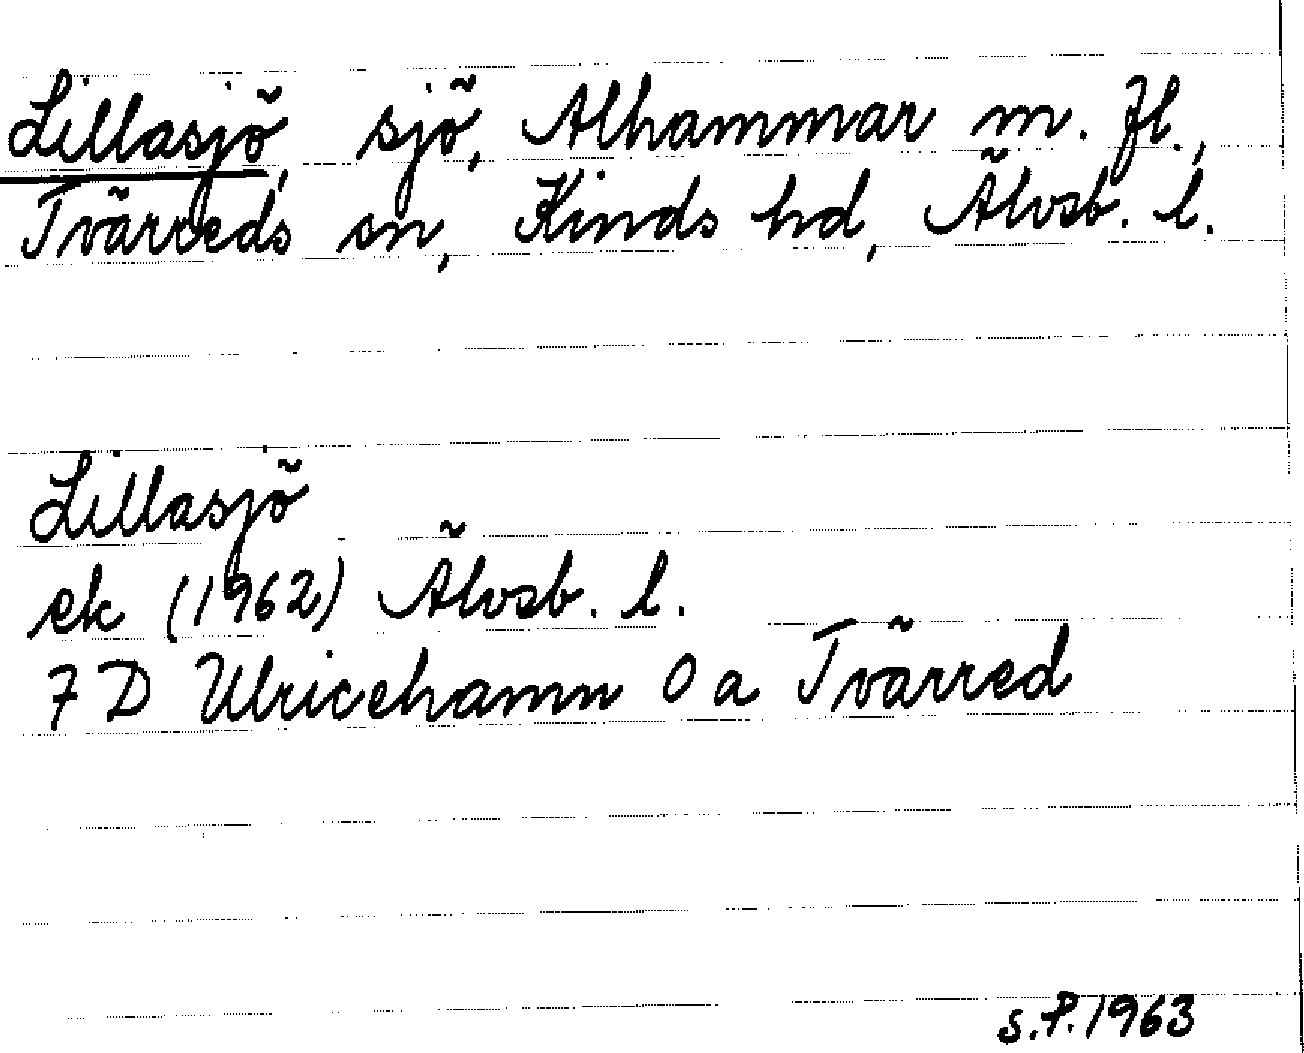 Lillasjö, sjö, Alhammar m. fl.,
Tvärreds sn, Kinds hd, Älvsb. l.
Lillasjö
ek (1962) Älvsb. l.
7 D Ulricehamn 0 a Tvärred
S.P. 1963